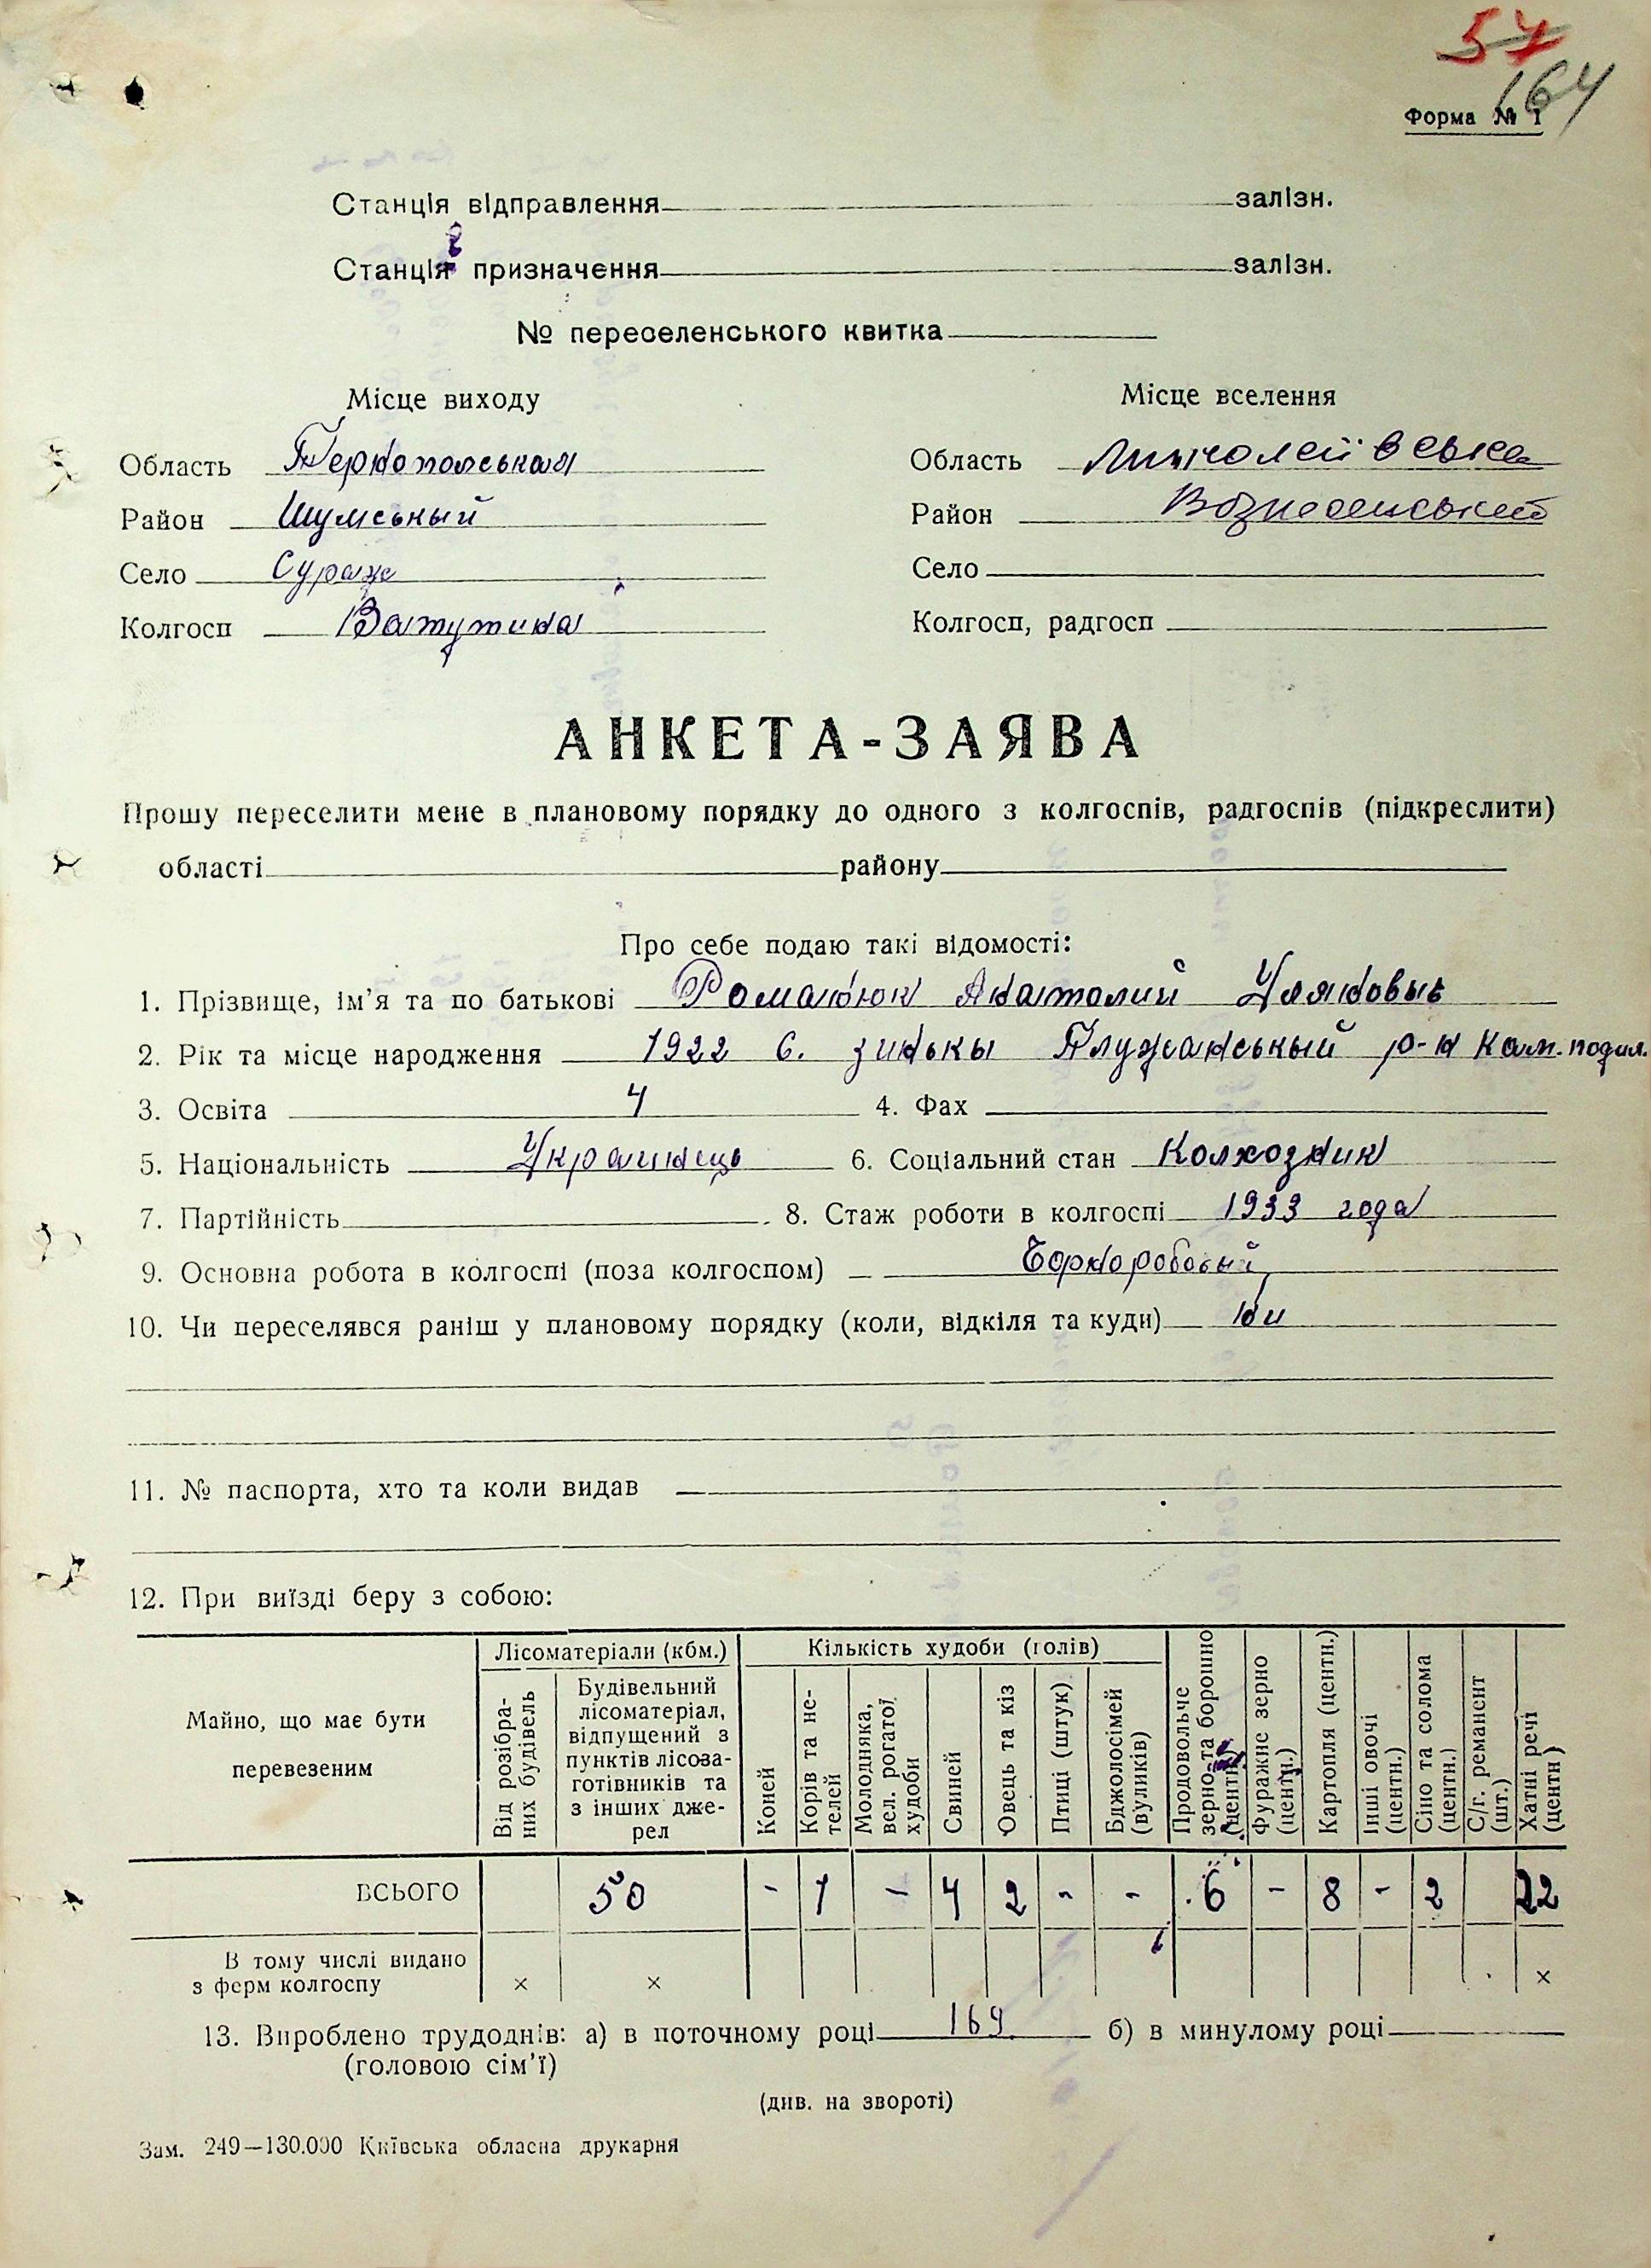 57
164
Форма № 1
Станція відправлення залізн.
Станція призначення залізн.
№ переселенського квитка
Місце виходу Місце вселення
Область Тернопольская Область Миколаївська
Район Шумськый Район Вознесенський
Село Сураж Село
Колгосп Ватутина Колгосп, радгосп
АНКЕТА-ЗАЯВА
Прошу переселити мене в плановому порядку до одного з колгоспів, радгоспів (підкреслити)
області району
Про себе подаю такі відомості:
1. Прізвище, ім'я та по батькові Романюк Анатолий Уляновыч
2. Рік та місце народження 1922 с. зинькы Плужанськый р-н Кам. подил.
3. Освіта 4 4. Фах
5. Національність Украинець 6. Соціальний стан Колхозник
7. Партійність 8. Стаж роботи в колгоспі 1933 года
9. Основна робота в колгоспі (поза колгоспом) Чорноробочый
10. Чи переселявся раніш у плановому порядку (коли, відкіля та куди) ни
11. № паспорта, хто та коли видав
12. При виїзді беру з собою:
Майно, що має бути перевезеним
Лісоматеріали (кбм.)
Від розібраних будівель
Будівельний лісоматеріал, відпущений з пунктів лісозаготівників та з інших джерел
Кількість худоби (голів)
Коней
Корів та нетелей
Молодняка, вел. рогатої худоби
Свиней
Овець та кіз
Птиці (штук)
Бджолосімей (вуликів)
Продовольче зерно та борошно (центн.)
Фуражне зерно (центн.)
Картопля (центн.)
Інші овочі (центн.)
Сіно та солома (центн.)
С/г. реманент (шт.)
Хатні речі (центн)
ВСЬОГО 50 - 1 - 4 2 - - 6 - 8 - 2 22
В тому числі видано з ферм колгоспу × × ×
13. Вироблено трудоднів: а) в поточному році 169 б) в минулому році
(головою сім'ї)
(див. на звороті)
Зам. 249—130.000 Київська обласна друкарня